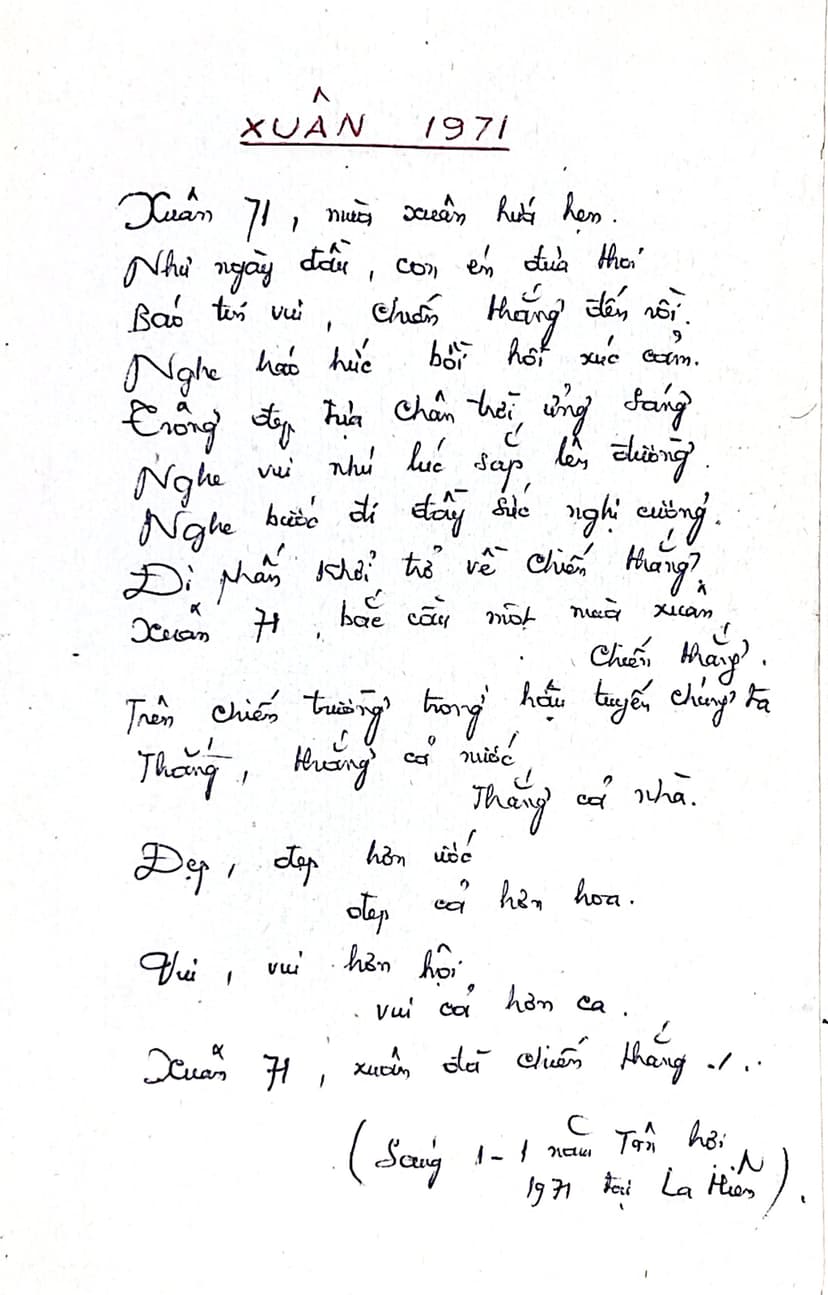 XUÂN 1971
Xuân 71, mùa xuân hứa hẹn.
Như ngày đầu, con én đưa thoi
Báo tin vui, chiến thắng đến rồi.
Nghe háo hức bồi hồi xúc cảm.
Trông đẹp tựa chân trời ửng sáng
Nghe vui như lúc sắp lên đường.
Nghe bước đi đầy sức nghị cường.
Đi phấn khởi trở về chiến thắng.
Xuân 71, bắc cầu một mùa xuân
Chiến thắng.
Trên chiến trường trong hậu tuyến chúng ta
Thắng, thắng cả nước
Thắng cả nhà.
Đẹp, đẹp hơn ước
đẹp cả hơn hoa.
Vui, vui hơn hội
vui cả hơn ca.
Xuân 71, xuân đã chiến thắng ./..
(Sáng 1-1 năm Tân hợi
1971 tại La Hiên).